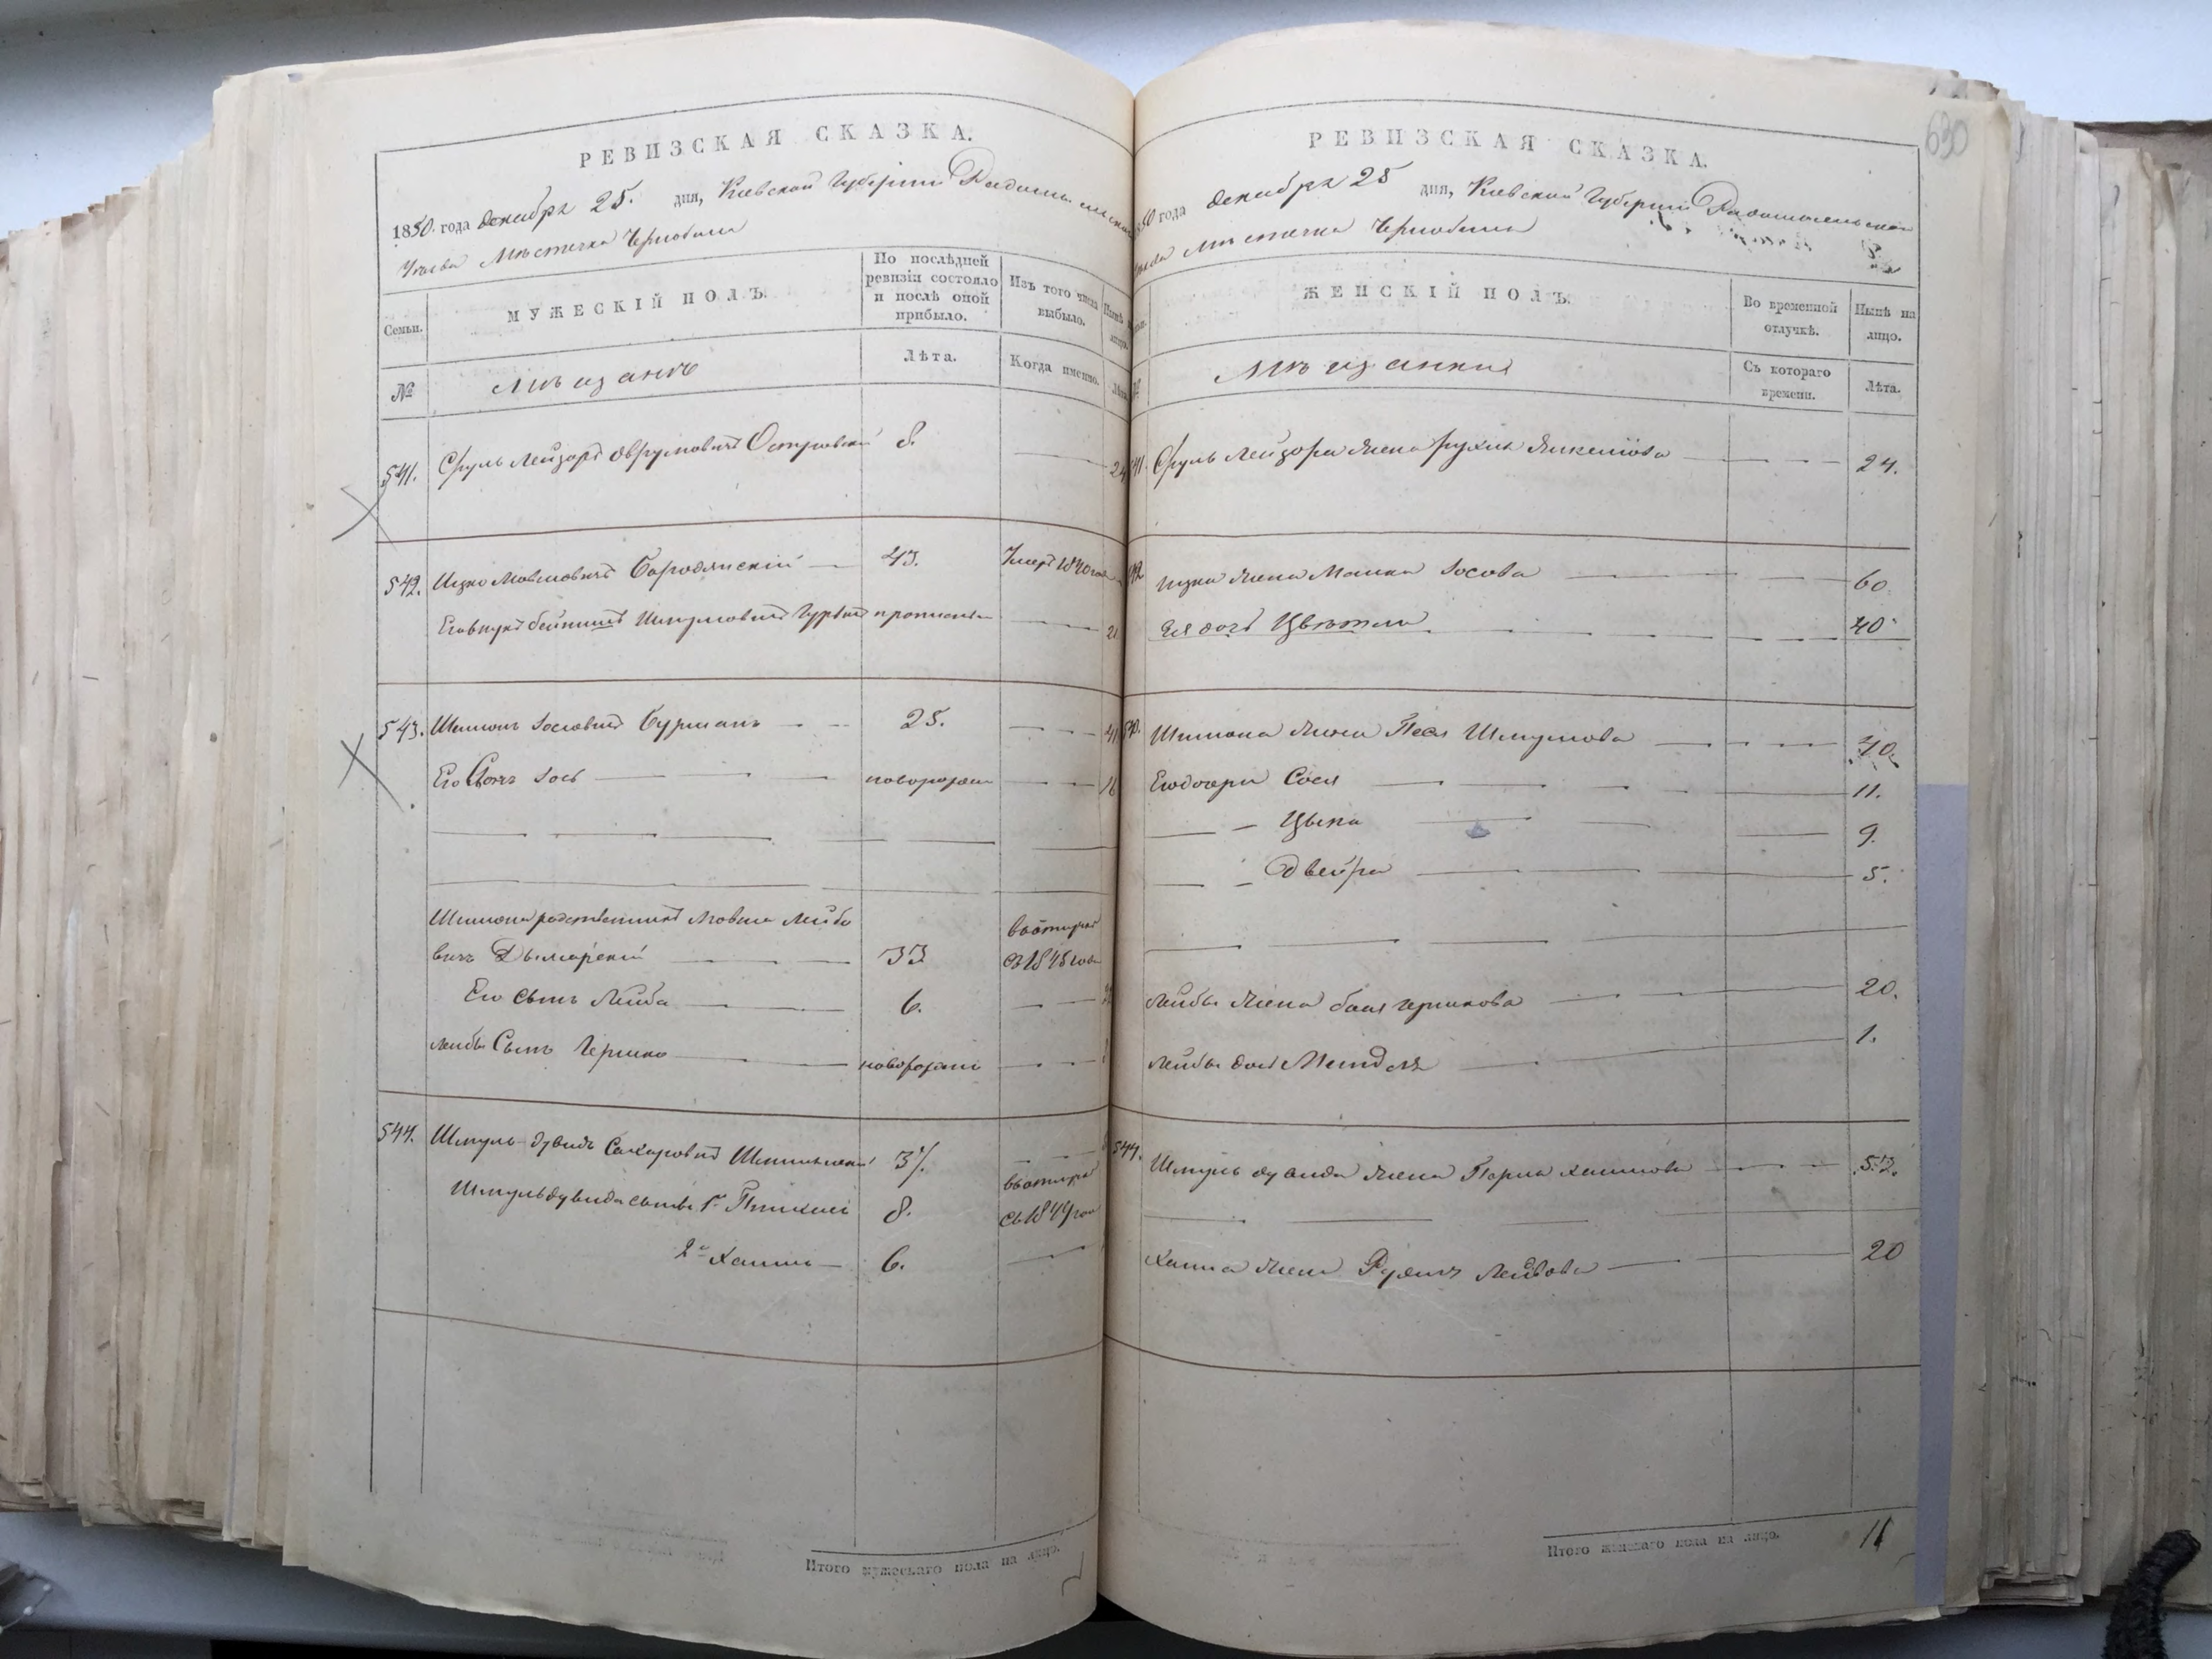 РЕВИЗСКАЯ СКАЗКА.
1850. года декабря 25. дня, Киевской Губернии Радомысльскаго
Уезда Местечка Чернобыля
Семьи.
МУЖЕСКІЙ ПОЛЪ.
По послѣдней ревизіи состояло и послѣ оной прибыло.
Изъ того числа выбыло.
Нынѣ на лицо.
№
Мѣщанъ
Лѣта.
Когда именно.
Лѣта.
541. Сруль Лейзоръ Аврумовичъ Островскій 8. 24
542. Ицко Мовшовичъ Бородянскій 43. Умеръ 1840 года
Его внукъ Шмуловичъ прописной 21
543. Шимонъ Іосіовичъ Бурманъ 25. 41
Его Сынъ Іось новорожден 16
Шимона родственникъ Мовша Лейбо
вичъ Дымарскій 33 въ отлучкѣ съ 1848 года
Его сынъ Лейба 6.
Лейбы Сынъ Гершко новорожден
544. Шмуль-Дувидъ Сахаровичъ 37. въ отлучкѣ
Шмуль Дувида сыновья 1й 8. съ 1849 года
2й Хаимъ 6.
Итого мужескаго пола на лицо.
630
РЕВИЗСКАЯ СКАЗКА.
1850 года декабря 25 дня, Киевской Губернии Радомысльскаго
уезда Местечка Чернобыля
ЖЕНСКІЙ ПОЛЪ.
Во временной отлучкѣ.
Нынѣ на лицо.
№
Мѣщанки
Съ котораго времени.
Лѣта.
541. Сруль Лейзора жена Рухля 24.
542 Ицка жена Малка Іосова 60.
Ея дочь Цвѣтля 40.
543. Шимона жена Песя Шмулова 40.
Его дочери Сося 11.
Цыпа 9.
Двейра 5.
Лейбы жена Бася Гершкова 20.
Лейбы дочь Мендля 1.
544. Шмуль Дувида жена Перла Хаимова 53.
Хаима жена Лейбова 20
Итого женскаго пола на лицо. 11